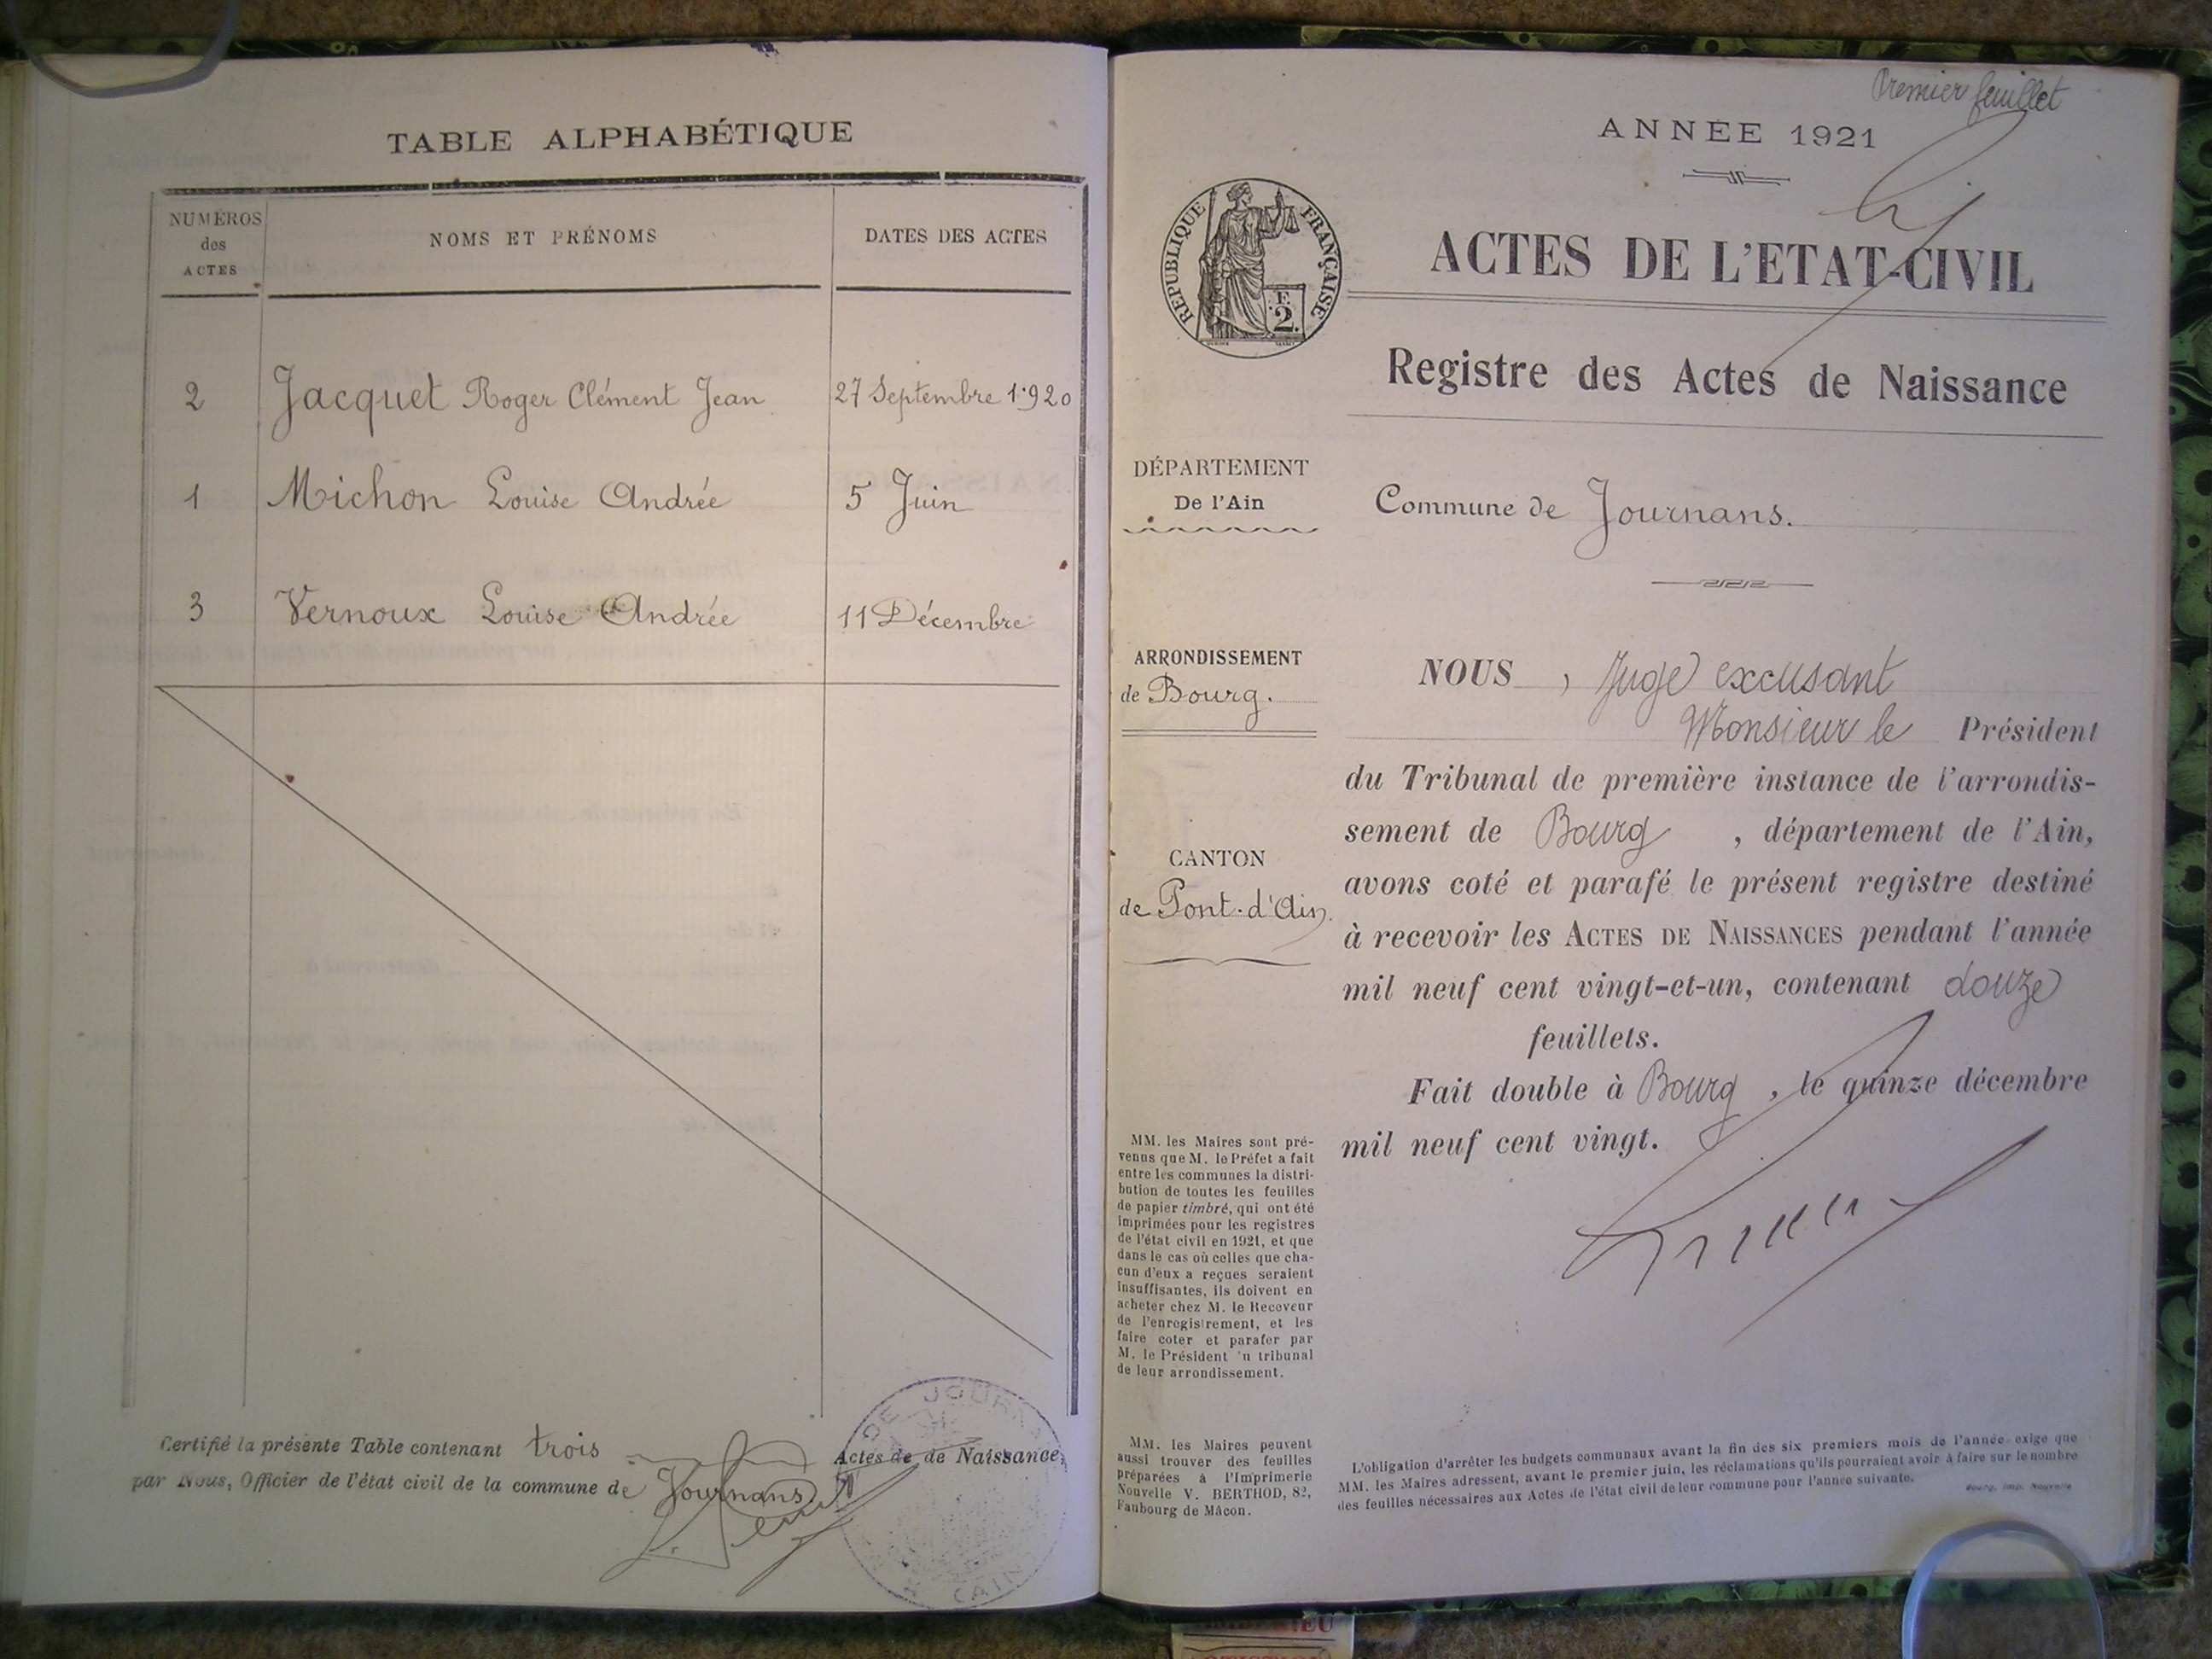 TABLE ALPHABÉTIQUE
NUMÉROS
des
ACTES
NOMS ET PRÉNOMS
DATES DES ACTES
2 Jacquet Roger Clément Jean 27 Septembre 1920
1 Michon Louise Andrée 5 Juin
3 Vernoux Louise Andrée 11 Décembre
Certifié la présente Table contenant trois Actes de de Naissance,
par Nous, Officier de l'état civil de la commune de Journans
Premier feuillet
ANNÉE 1921
RÉPUBLIQUE FRANÇAISE
F.
2.
ACTES DE L'ETAT-CIVIL
Registre des Actes de Naissance
DÉPARTEMENT
De l'Ain
Commune de Journans.
ARRONDISSEMENT
de Bourg.
CANTON
de Pont-d'Ain.
NOUS , Juge excusant
Monsieur le Président
du Tribunal de première instance de l'arrondis-
sement de Bourg , département de l'Ain,
avons coté et parafé le présent registre destiné
à recevoir les ACTES DE NAISSANCES pendant l'année
mil neuf cent vingt-et-un, contenant douze
feuillets.
Fait double à Bourg , le quinze décembre
mil neuf cent vingt.
MM. les Maires sont pré-
venus que M. le Préfet a fait
entre les communes la distri-
bution de toutes les feuilles
de papier timbré, qui ont été
imprimées pour les registres
de l'état civil en 1921, et que
dans le cas où celles que cha-
cun d'eux a reçues seraient
insuffisantes, ils doivent en
acheter chez M. le Receveur
de l'enregistrement, et les
faire coter et parafer par
M. le Président 'u tribunal
de leur arrondissement.
MM. les Maires peuvent
aussi trouver des feuilles
préparées à l'Imprimerie
Nouvelle V. BERTHOD, 82,
Faubourg de Mâcon.
L'obligation d'arrêter les budgets communaux avant la fin des six premiers mois de l'année exige que
MM. les Maires adressent, avant le premier juin, les réclamations qu'ils pourraient avoir à faire sur le nombre
des feuilles nécessaires aux Actes de l'état civil de leur commune pour l'année suivante.
Bourg, Imp. Nouvelle